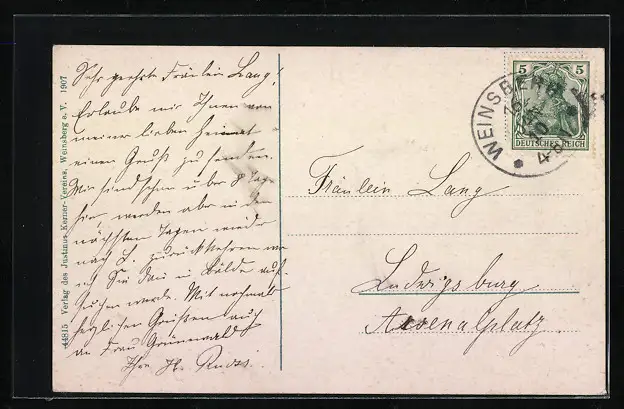 44815 Verlag des Justinus-Kerner-Vereins, Weinsberg e. V. 1907
Sehr geehrte Fräulein Lang!
Erlaube mir Ihnen von
meiner lieben Heimat
einen Gruß zu senden.
Wir sind schon über 8 Tage
hier, werden aber in den
nächsten Tagen wieder
nach L. zurückkehren wo
ich Sie dann in Bälde auf-
suchen werde. Mit nochmals
herzlichen Grüßen auch
an Frau Grünwald
Ihre H.
WEINSBERG
5 5
DEUTSCHES REICH
Fräulein Lang
Ludwigsburg
Arsenalplatz.